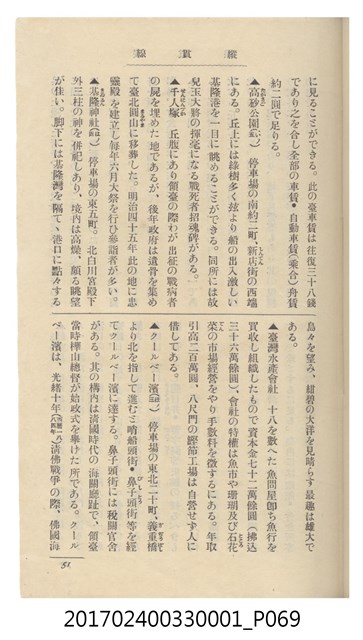 線貫縱
に見ることができる。此の臺車賃は往復三十八錢
であり之を合し全部の車賃・自動車賃(乘合)舟賃
約二圓で足りる。
▲高砂公園 停車場の南約二町、新店街の西端
にある。丘上には綠樹多く茲より船の出入激しい
基隆港を一目に眺めることができる。同所には故
兒玉大將の揮毫になる戰死者招魂碑がある。
▲千人塚 丘腹にあり領臺の際わが出征の戰病者
の屍を埋めた地であるが、後年政府は遺骨を集め
て臺北圓山に移葬した。明治四十五年此の地に忠
靈殿を建立し毎年六月大祭を行ひ參詣者が多い。
▲基隆神社 停車場の東五町。北白川宮殿下
外三柱の神を併祀しあり、境內は高燥、頗る眺望
が佳い。脚下には基隆灣を隔てゝ港口に點々する
島々を望み、紺碧の大洋を見晴らす最趣は雄大で
ある。
▲臺灣水產會社 十八を數へた魚問屋卽ち魚行を
買收し組織したもので資本金七十二萬餘圓(拂込
三十六萬餘圓)會社の特權は魚市や珊瑚及び石花
菜の市場經營をやり手數料を徵するにある。年取
引高二百萬圓、八尺門の鰹節工場は自營せず人に
借してある。
▲クールベー濱 停車場の東北二十町、義重橋
より北を指して進む三哨船頭・鼻子頭街等を經
てクールベー濱に達する。鼻子頭街には稅關官舍
がある。其の構內は淸國時代の海關廳趾で、領臺
當時樺山總督が始政式を擧げた所である。クール
ベー濱は、光緖十年淸佛戰爭の際、佛國海
51
201702400330001_P069